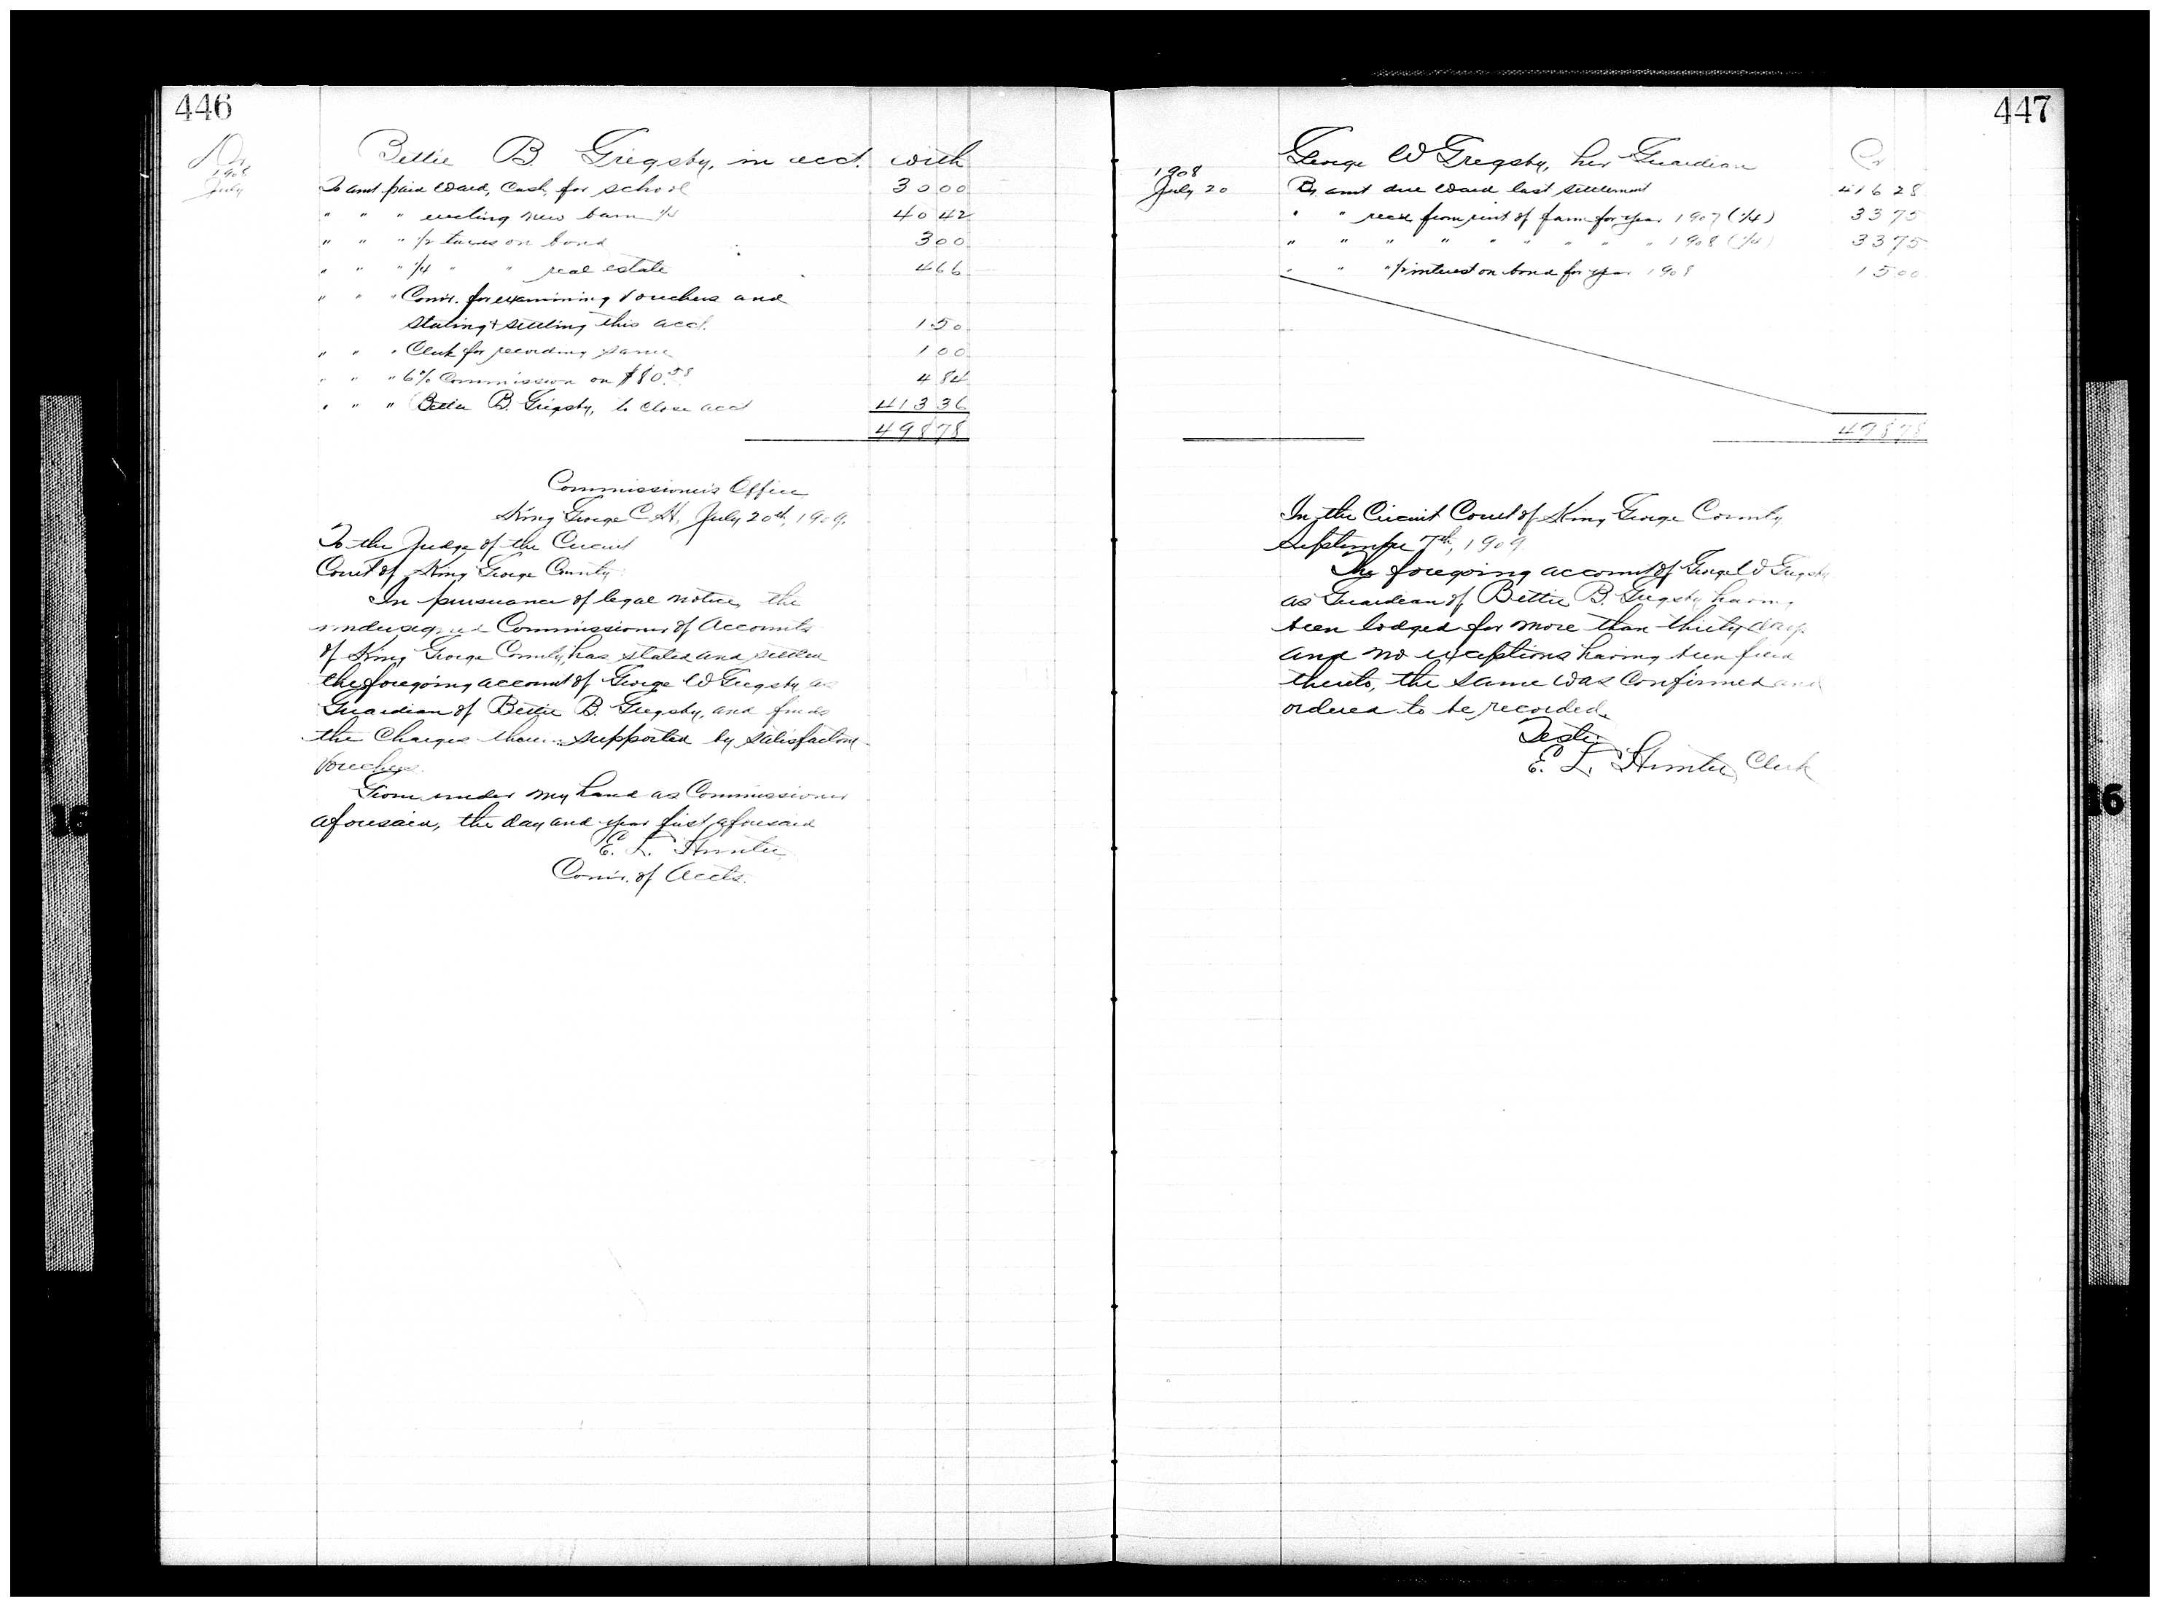 446
Dr. Bettie B Grigsby, in acct. with
1908
July To amt. paid Ward, Cash, for school 30 00
" " " erecting new barn 1/4 40 42
" " " 1/2 taxes on bond 3 00
" " " 1/4 " " real estate 4 66
" " " Comr. for examining vouchers and
stating & settling this acct. 1 50
" " " Clerk for recording same 1 00
" " " 6% Commission on $80.58 4 84
" " " Bettie B. Grigsby, to close acct 413 36
498 78
Commissioner's Office
King George C. H., July 20th, 1909.
To the Judge of the Circuit
Court of King George County:
In pursuance of legal notice, the
undersigned Commissioner of Accounts
of King George County, has stated and settled
the foregoing account of George W Grigsby as
Guardian of Bettie B. Grigsby, and finds
the Charges supported by satisfactory
vouchers.
Given under my hand as Commissioner
aforesaid, the day and year first aforesaid
E. L. Hunter
Comr. of Accts.
447
George W Grigsby, her Guardian Cr
1908
July 20 By amt due Ward last settlement 416 28
" " recd from rent of farm for year 1907 (1/4) 33 75
" " " " " " " " " 1908 (1/4) 33 75
" " " 1/2 interest on bond for year 1908 15 00
498 78
In the Circuit Court of King George County
September 7th, 1909
The foregoing account of George W Grigsby
as Guardian of Bettie B. Grigsby having
been lodged for more than thirty days
and no exceptions having been filed
thereto, the same was Confirmed and
ordered to be recorded.
Teste:
E. L. Hunter, Clerk
16
16